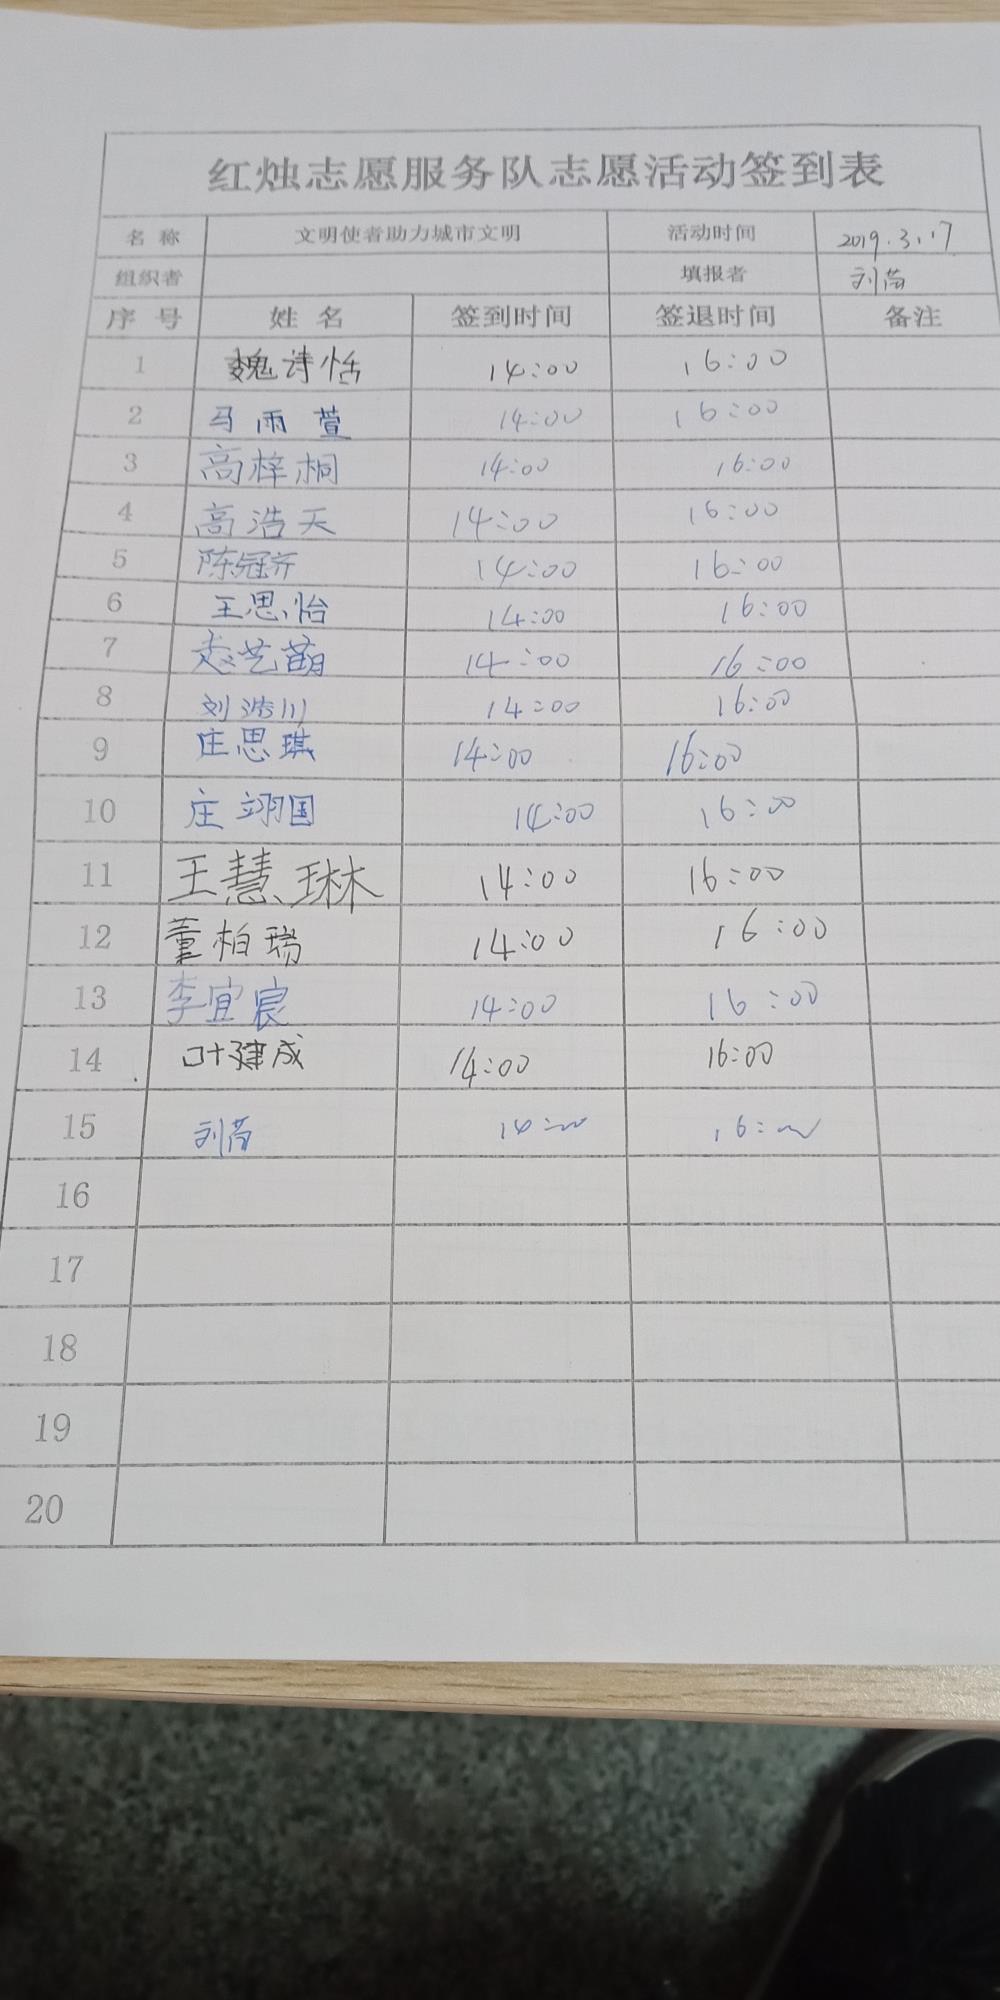 红烛志愿服务队志愿活动签到表
名称 文明使者助力城市文明 活动时间 2019.3.17
组织者 填报者 刘茵
序号 姓名 签到时间 签退时间 备注
1 魏诗恬 14:00 16:00
2 马雨萱 14:00 16:00
3 高梓桐 14:00 16:00
4 高浩天 14:00 16:00
5 陈冠齐 14:00 16:00
6 王思怡 14:00 16:00
7 14:00 16:00
8 刘浩川 14:00 16:00
9 庄思琪 14:00 16:00
10 庄翊国 14:00 16:00
11 王慧琳 14:00 16:00
12 董柏瑞 14:00 16:00
13 李宜宸 14:00 16:00
14 叶建成 14:00 16:00
15 刘茵 14:00 16:00
16
17
18
19
20